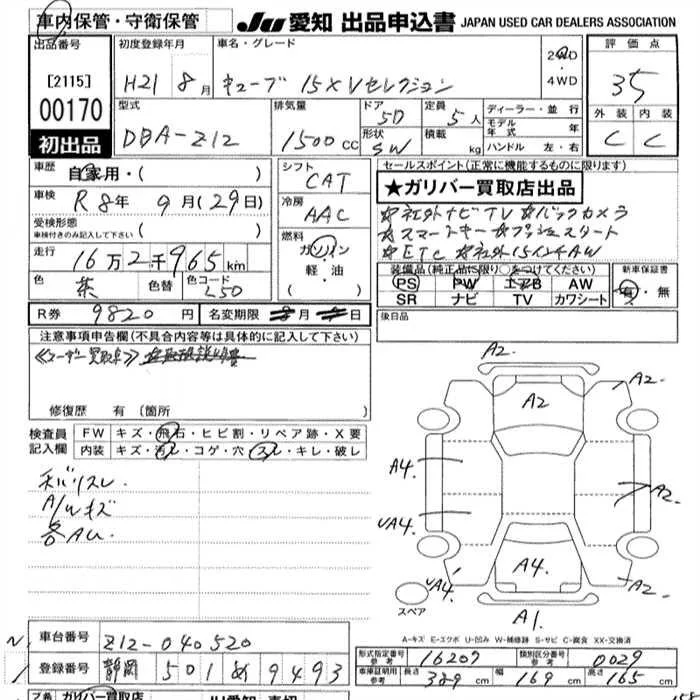 車内保管・守衛保管
JU 愛知 出品申込書 JAPAN USED CAR DEALERS ASSOCIATION
出品番号 [2115] 00170 初出品
初度登録年月 H21 8月
車名・グレード キューブ 15X Vセレクション
2WD・4WD
評価点 3.5
外装 内装
C C
型式 DBA-Z12
排気量 1500cc
ドア 5D
形状 SW
定員 5人
積載 kg
ディーラー・並行
モデル年式 年
ハンドル 左・右
車歴 自家用・( )
車検 R8年 9月(29日)
受検形態
車検付きのみ記入して下さい ( )
走行 16万2千965km
色 茶 色替 色コード L50
シフト CAT
冷房 AAC
燃料 ガソリン
軽・油
セールスポイント(正常に機能するものに限ります)
★ガリバー買取店出品
☆社外ナビTV ☆バックカメラ
☆スマートキー ☆プッシュスタート
☆ETC ☆社外15インチAW
装備品(純正品に限り○をつけてください)
PS PW エアB AW
SR ナビ TV カワシート
新車保証書
有・無
R券 9820円 名変期限 月 日
後日品
注意事項申告欄(不具合内容等は具体的に記入して下さい)
≪ユーザー買取車≫
修復歴 有 〔箇所
検査員記入欄
FW キズ・飛石・ヒビ割・リペア跡・X要
内装 キズ・汚レ・コゲ・穴・スレ・キレ・破レ
A/Wキズ
各AU.
A2
A2
A2
A4
A2
UA4
UA4
A4
A2
A1
スペア
A-キズ E-エクボ U-凹み W-補修跡 S-サビ C-腐食 XX-交換済
車台番号 Z12-040520
登録番号 静岡 501 ぬ 9493
型式指定番号 参考 16207
類別区分番号 参考 0029
車庫証明用 参考 長さ 389cm 幅 169cm 高さ 165cm
ガリバー買取店
JU愛知